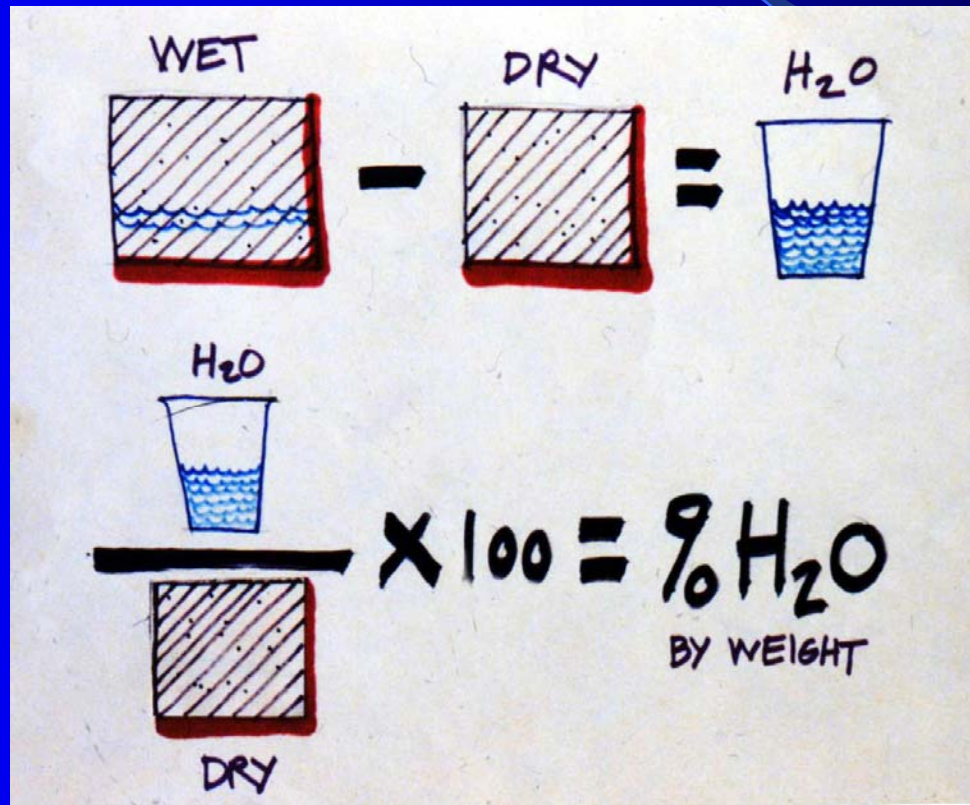 WET
DRY
H₂O
H₂O
X 100 = % H₂O
BY WEIGHT
DRY